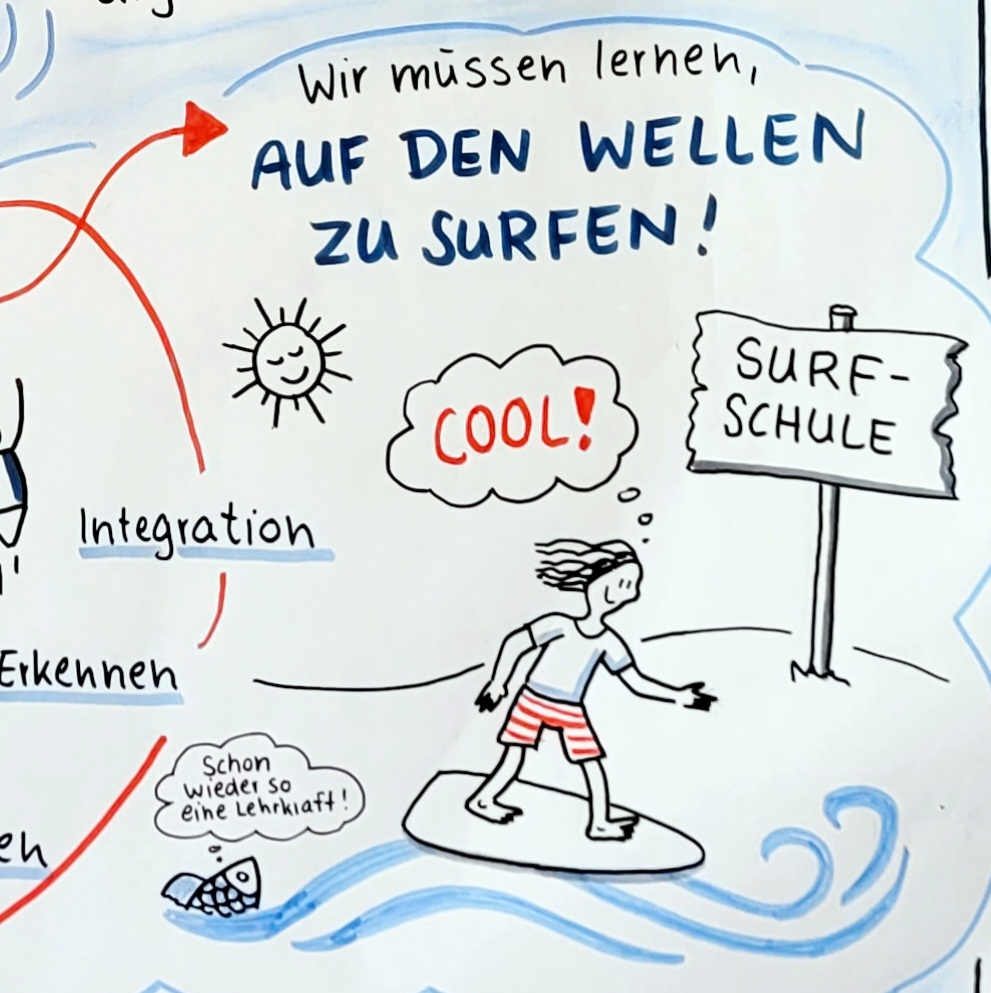 Wir müssen lernen,
AUF DEN WELLEN
ZU SURFEN!
COOL!
SURF-
SCHULE
Integration
Erkennen
Schon
wieder so
eine Lehrkraft!